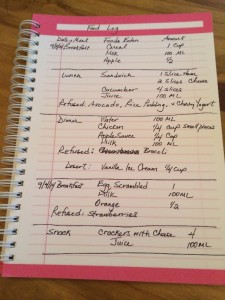 Food Log
Date/Meal Foods Eaten Amount
9/3/14 Breakfast Cereal 1 Cup
Milk 100 ML
Apple 1/2
Lunch Sandwich 1 Slice Ham
2 Slices Cheese
Cucumber 4 slices
Juice 100 ML
Refused: Avocado, Rice Pudding, + Cherry Yogurt
Dinner Water 100 ML
Chicken 1/4 Cup small pieces
AppleSauce 1/4 Cup
Milk 100 ML
Refused: Brocoli
Desert: Vanilla Ice Cream 1/4 cup
9/4/14 Breakfast Egg Scrambled 1
Milk 100ML
Orange 1/2
Refused: Strawberries
Snack Crackers with Cheese 4
Juice 100 ML